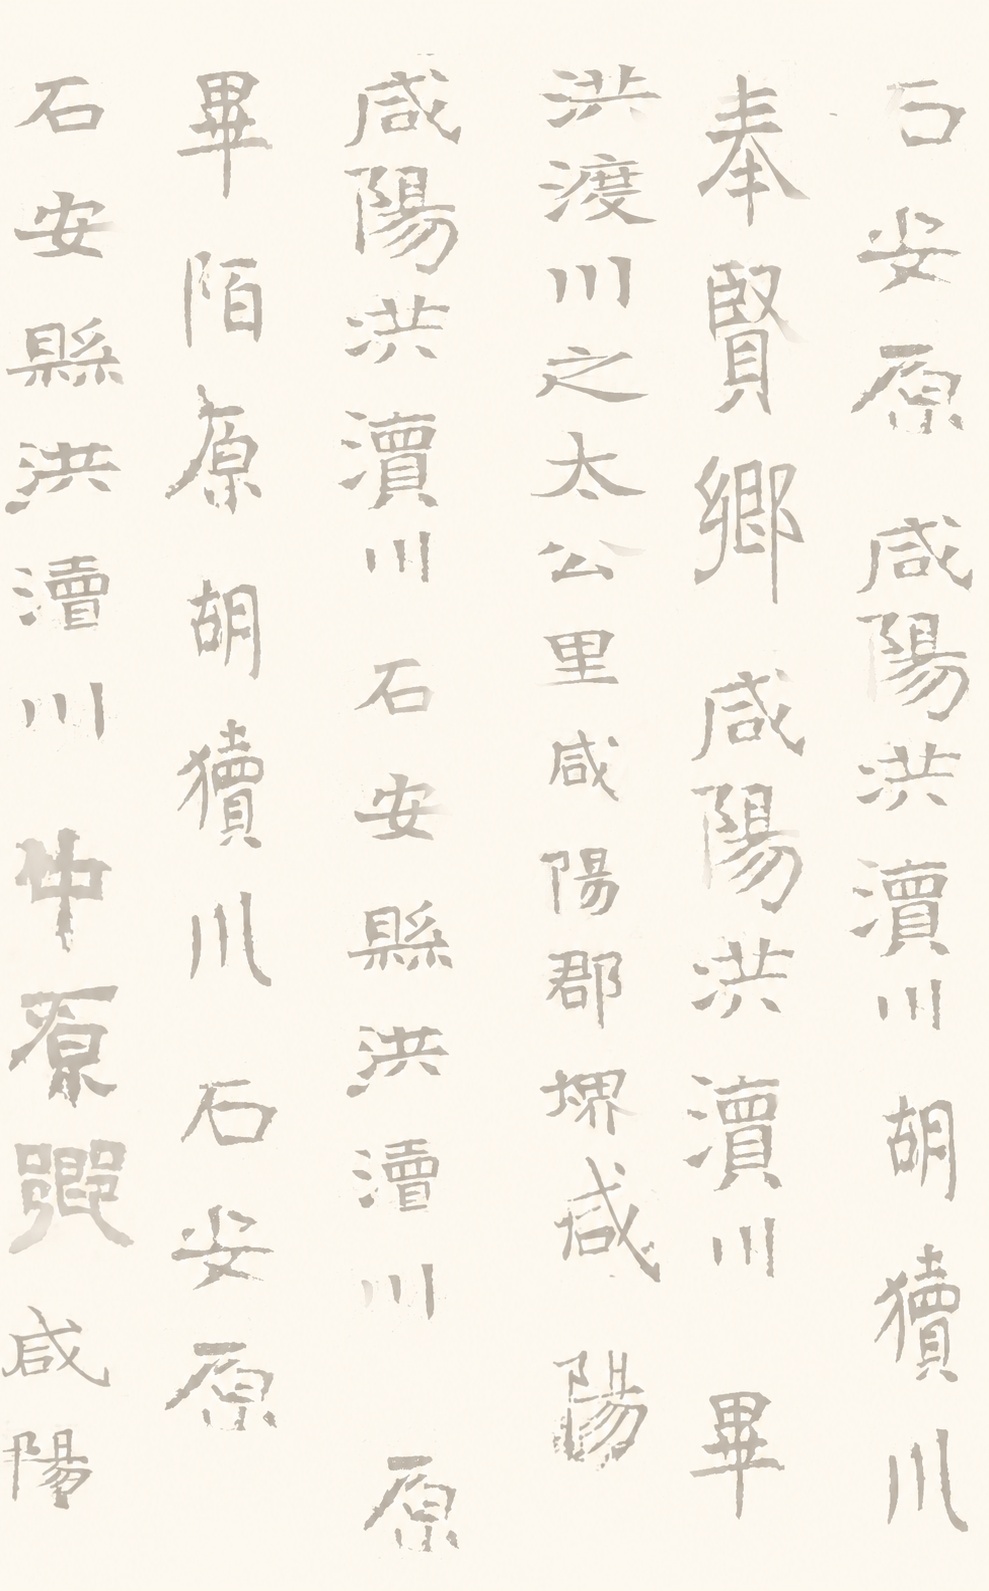 石安原 咸陽洪瀆川 胡獖川
奉賢鄉 咸陽洪瀆川 畢
洪渡川之太公里咸陽郡堺咸陽
咸陽洪瀆川 石安縣洪瀆川 原
畢陌原 胡獖川 石安原
石安縣洪瀆川 仲原 咸陽